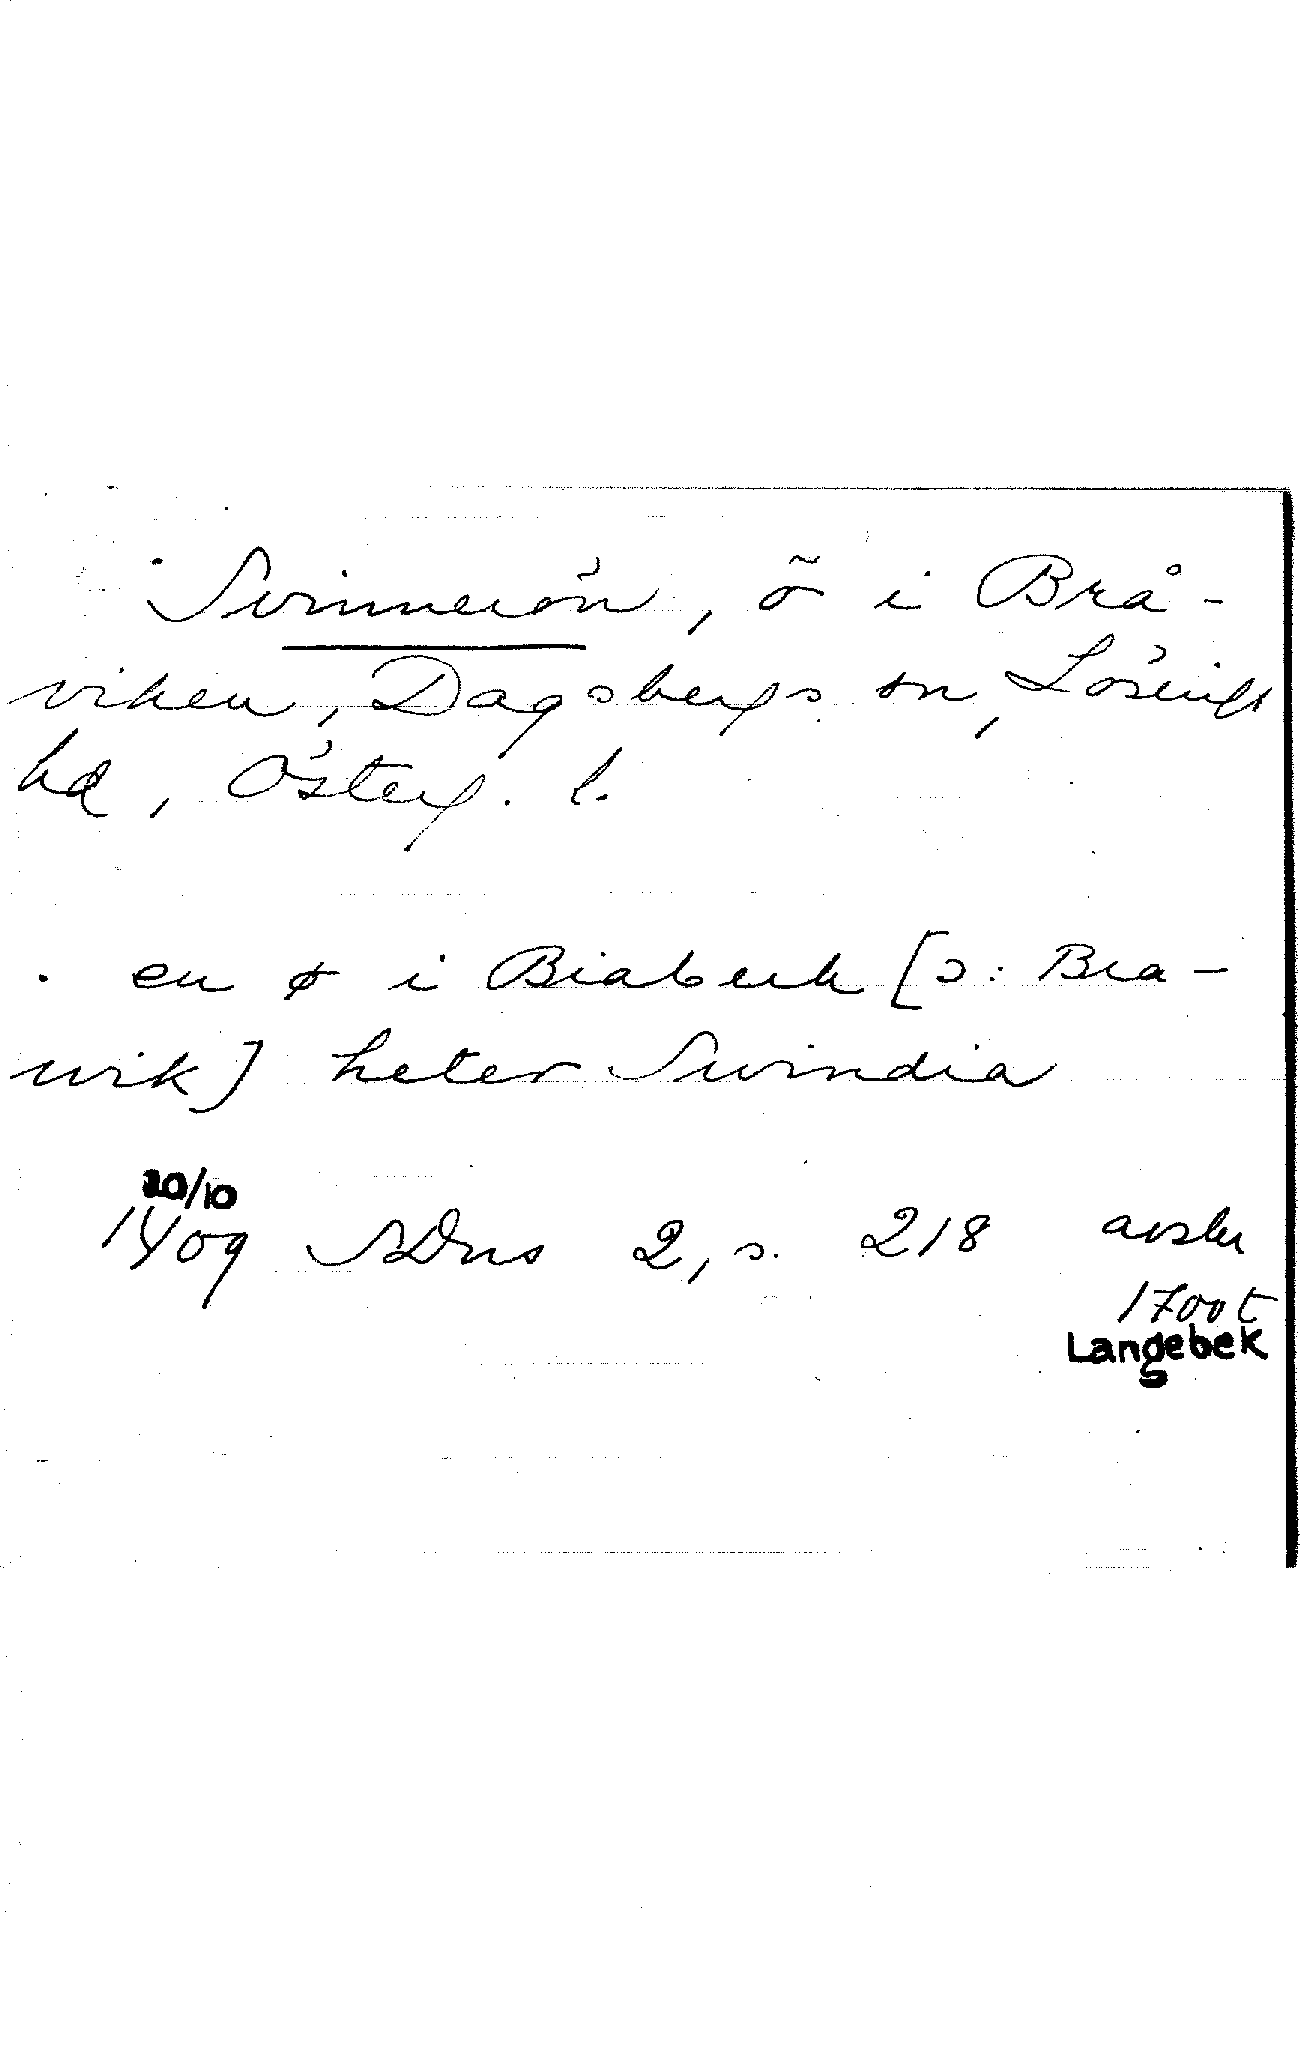 Svinnerön, ö i Brå-
viken, Dagsbergs sn, Lösings
hd, Österg. l.
en ø i Biabeuk [ɔ: Bra-
wik] heter Swindia
20/10
1409 SDns 2, s. 218 avskr
1700t
Langebek
5